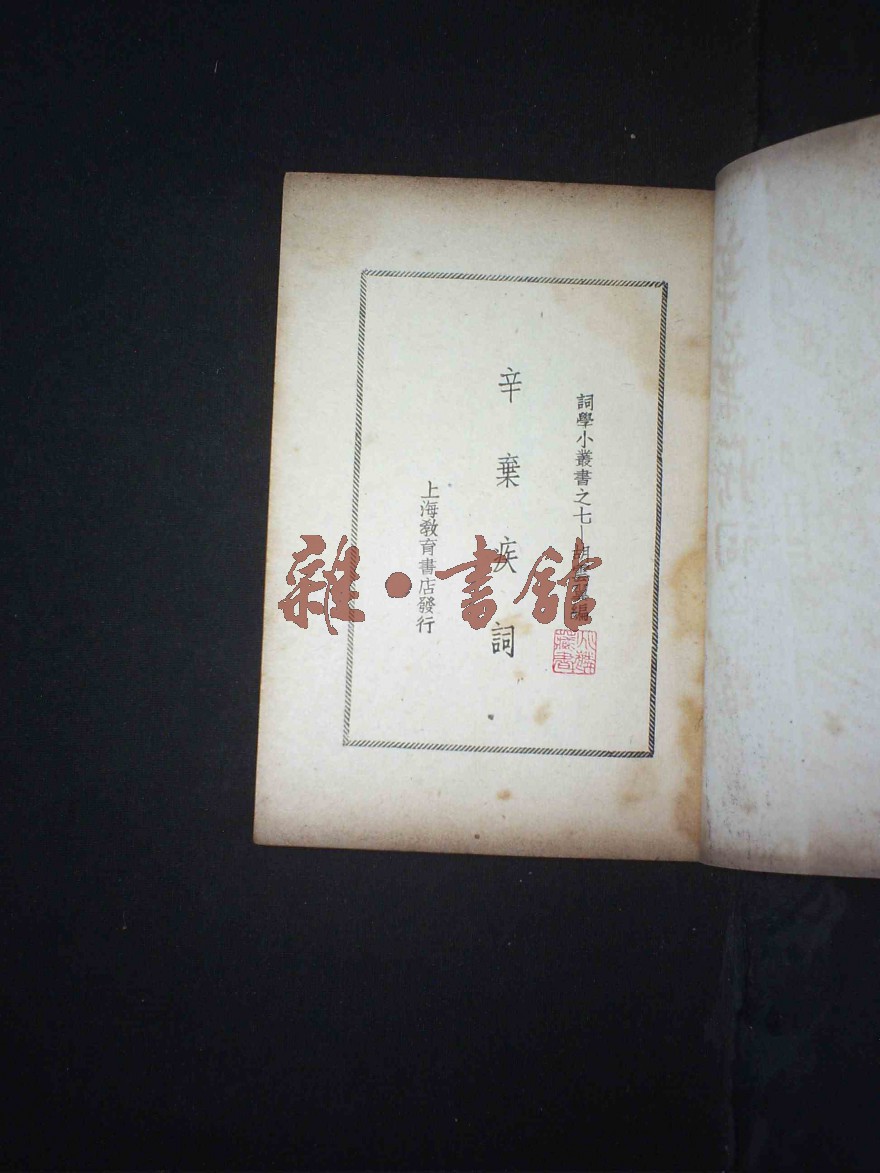 詞學小叢書之七—胡雲翼編
辛棄疾詞
上海教育書店發行
雜·書館